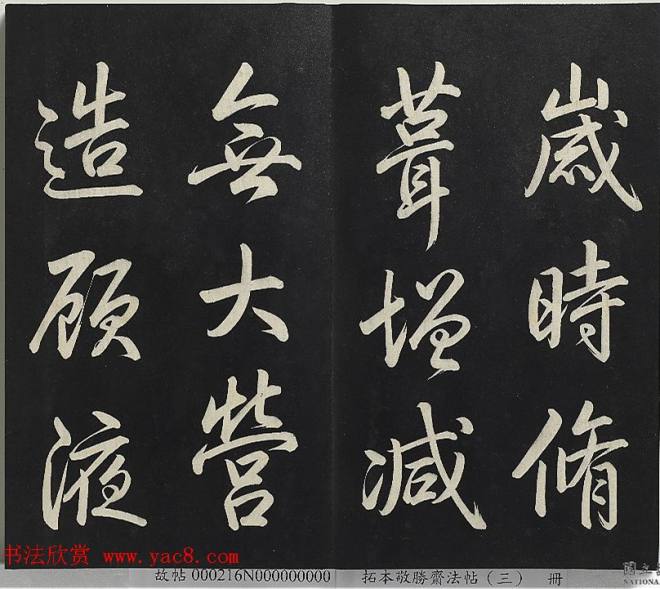 歲時脩
葺增減
無大營
造顧液
书法欣赏 www.yac8.com
故帖 000216N000000000
拓本敬勝齋法帖（三） 冊
國立
NATIONA